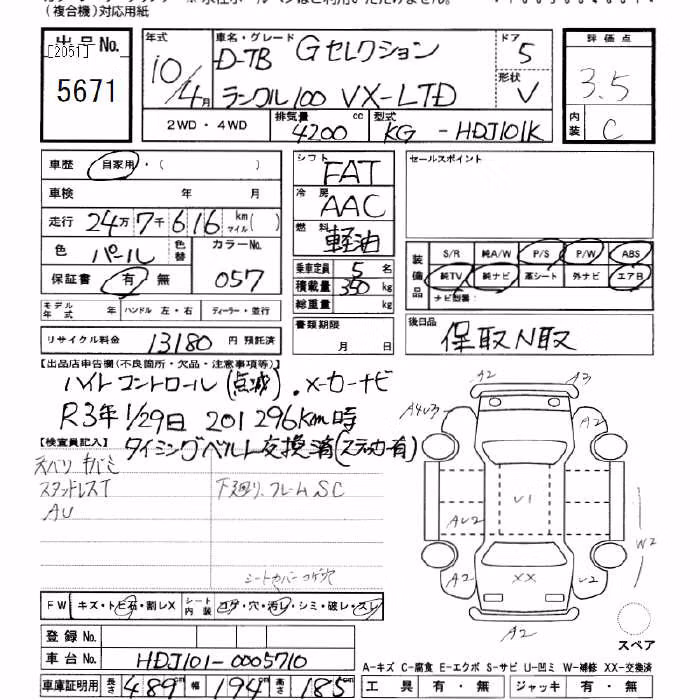 (複合機)対応用紙
出品No.
[2051]
5671
年式
10/4月
車名・グレード
D-TB Gセレクション
ランクル100 VX-LTD
ドア
5
形状
V
評価点
3.5
内装
C
2WD・4WD
排気量
4200cc
型式
KG-HDJ101K
車歴
自家用・( )
車検
年 月
走行
24万7千616
km マイル( )
色
パール
色替
カラーNo.
057
保証書
有・無
モデル年式
年
ハンドル 左・右
ディーラー・並行
リサイクル料金
13180
円 預託済
シフト
FAT
冷房
AAC
燃料
軽油
乗車定員
5名
積載量
350kg
総重量
kg
書類期限
月 日
セールスポイント
装備品
S/R
純A/W
P/S
P/W
ABS
純TV
純ナビ
革シート
外ナビ
エアB
ナビ型番:
後日品
保取N取
【出品店申告欄(不良箇所・欠品・注意事項等)】
ハイトコントロール(点滅).メーカーナビ
R3年1/29日 201296km時
タイミングベルト交換済(ステッカー有)
【検査員記入】
天バリ キバミ
スタッドレスT
AU
下廻り、フレームSC
シートカバーコゲ穴
FW
キズ・トビ石・割レX
シート内装
コゲ・穴・汚レ・シミ・破レ・スレ
登録No.
車台No.
HDJ101-0005710
車庫証明用
長さ
489cm
幅
194cm
高さ
185cm
A2
A3
A4U3
A2
U1
AU2
W2
A2
XX
U2
A2
スペア
A-キズ C-腐食 E-エクボ S-サビ U-凹ミ W-補修 XX-交換済
工具
有・無
ジャッキ
有・無